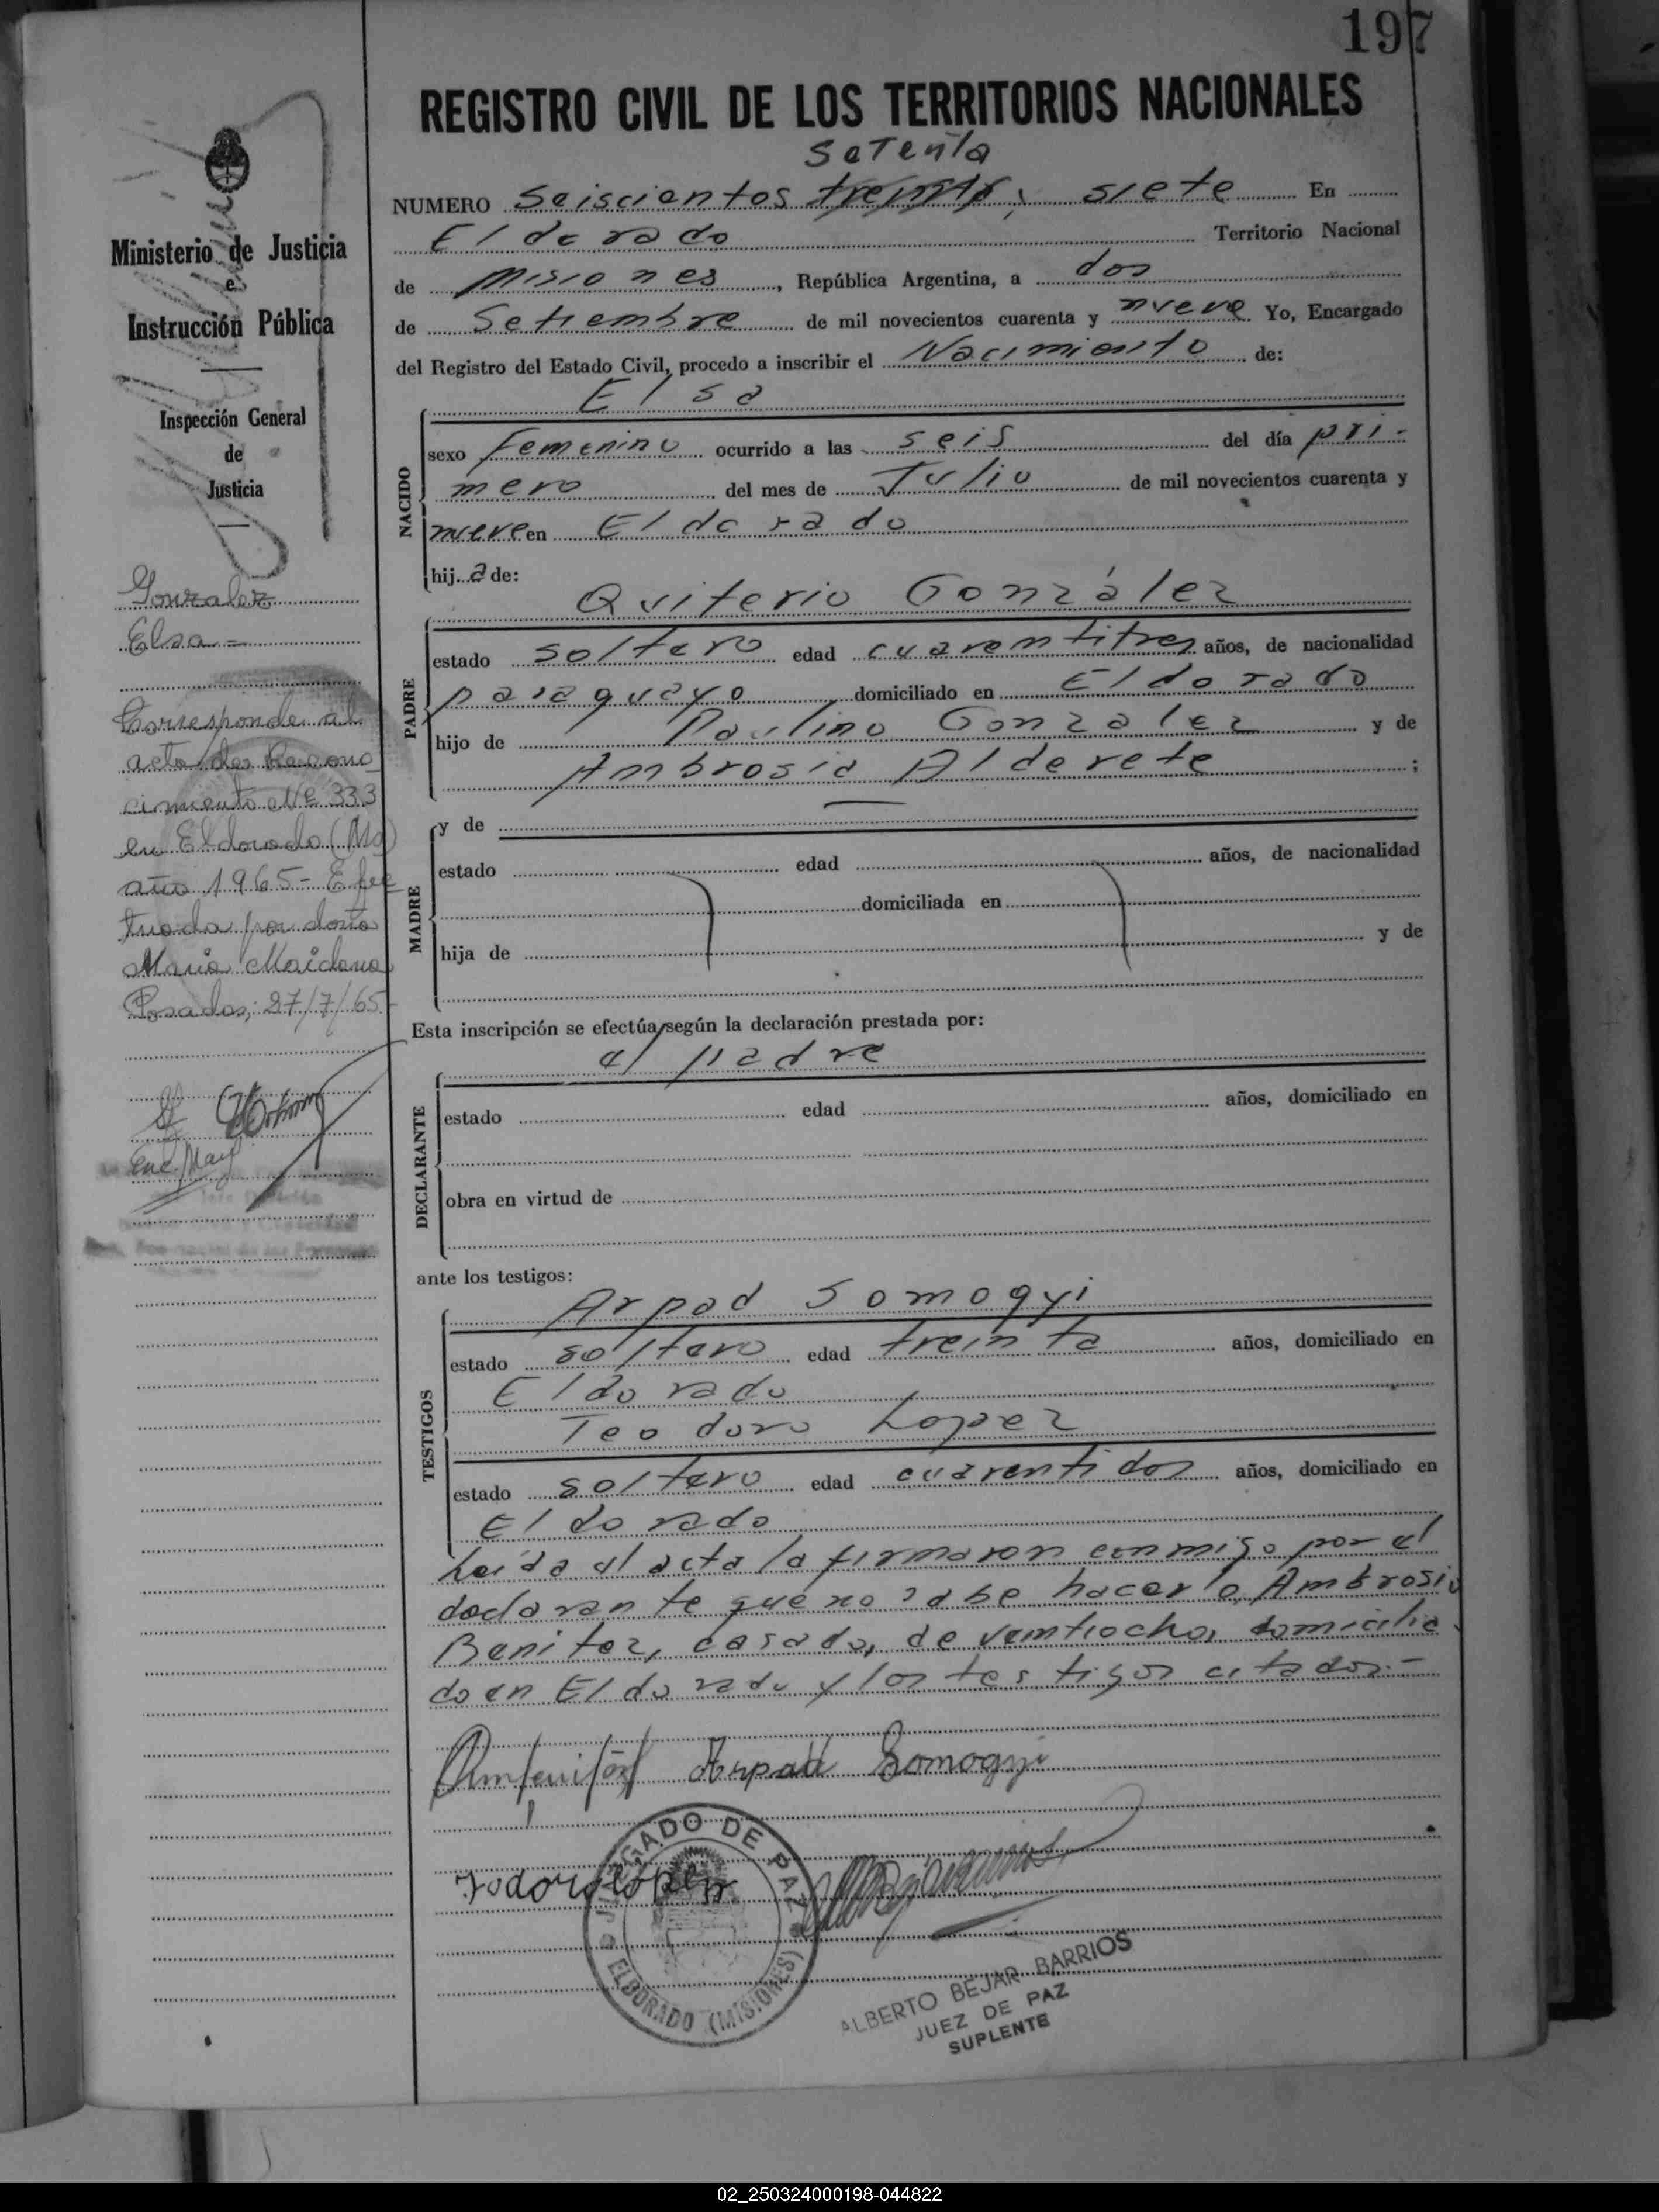 197
REGISTRO CIVIL DE LOS TERRITORIOS NACIONALES
Setenta
NUMERO Seiscientos treinta y siete En
Eldorado Territorio Nacional
de Misiones, República Argentina, a dos
de Setiembre de mil novecientos cuarenta y nueve Yo, Encargado
del Registro del Estado Civil, procedo a inscribir el Nacimiento de:
Elsa
NACIDO
sexo femenino ocurrido a las seis del día pri-
mero del mes de Julio de mil novecientos cuarenta y
nueve en Eldorado
hij a de:
Quiterio González
PADRE
estado soltero edad cuarentitres años, de nacionalidad
paraguayo domiciliado en Eldorado
hijo de Paulino Gonzalez y de
Ambrosia Alderete ;
MADRE
y de
estado edad años, de nacionalidad
domiciliada en
hija de y de
Esta inscripción se efectúa según la declaración prestada por:
el padre
DECLARANTE
estado edad años, domiciliado en
obra en virtud de
ante los testigos:
Arpad Somogyi
TESTIGOS
estado soltero edad treinta años, domiciliado en
Eldorado
Teodoro Lopez
estado soltero edad cuarentidos años, domiciliado en
Eldorado
Leída el acta la firmaron conmigo por el
declarante que no sabe hacerlo, Ambrosio
Benitez, casado, de veintiocho, domicilia
do en Eldorado y los testigos citados.-
Arpad Somogyi
JUZGADO DE PAZ
ELDORADO (MISIONES)
ALBERTO BEJAR BARRIOS
JUEZ DE PAZ
SUPLENTE
Ministerio de Justicia
e
Instrucción Pública
Inspección General
de
Justicia
Gonzalez
Elsa =
Corresponde al
acta de Recono
cimiento Nº 333
en Eldorado (Ms)
año 1965- Efec
tuada por doña
Maria Maidana
Posadas, 27/7/65-
02_250324000198-044822